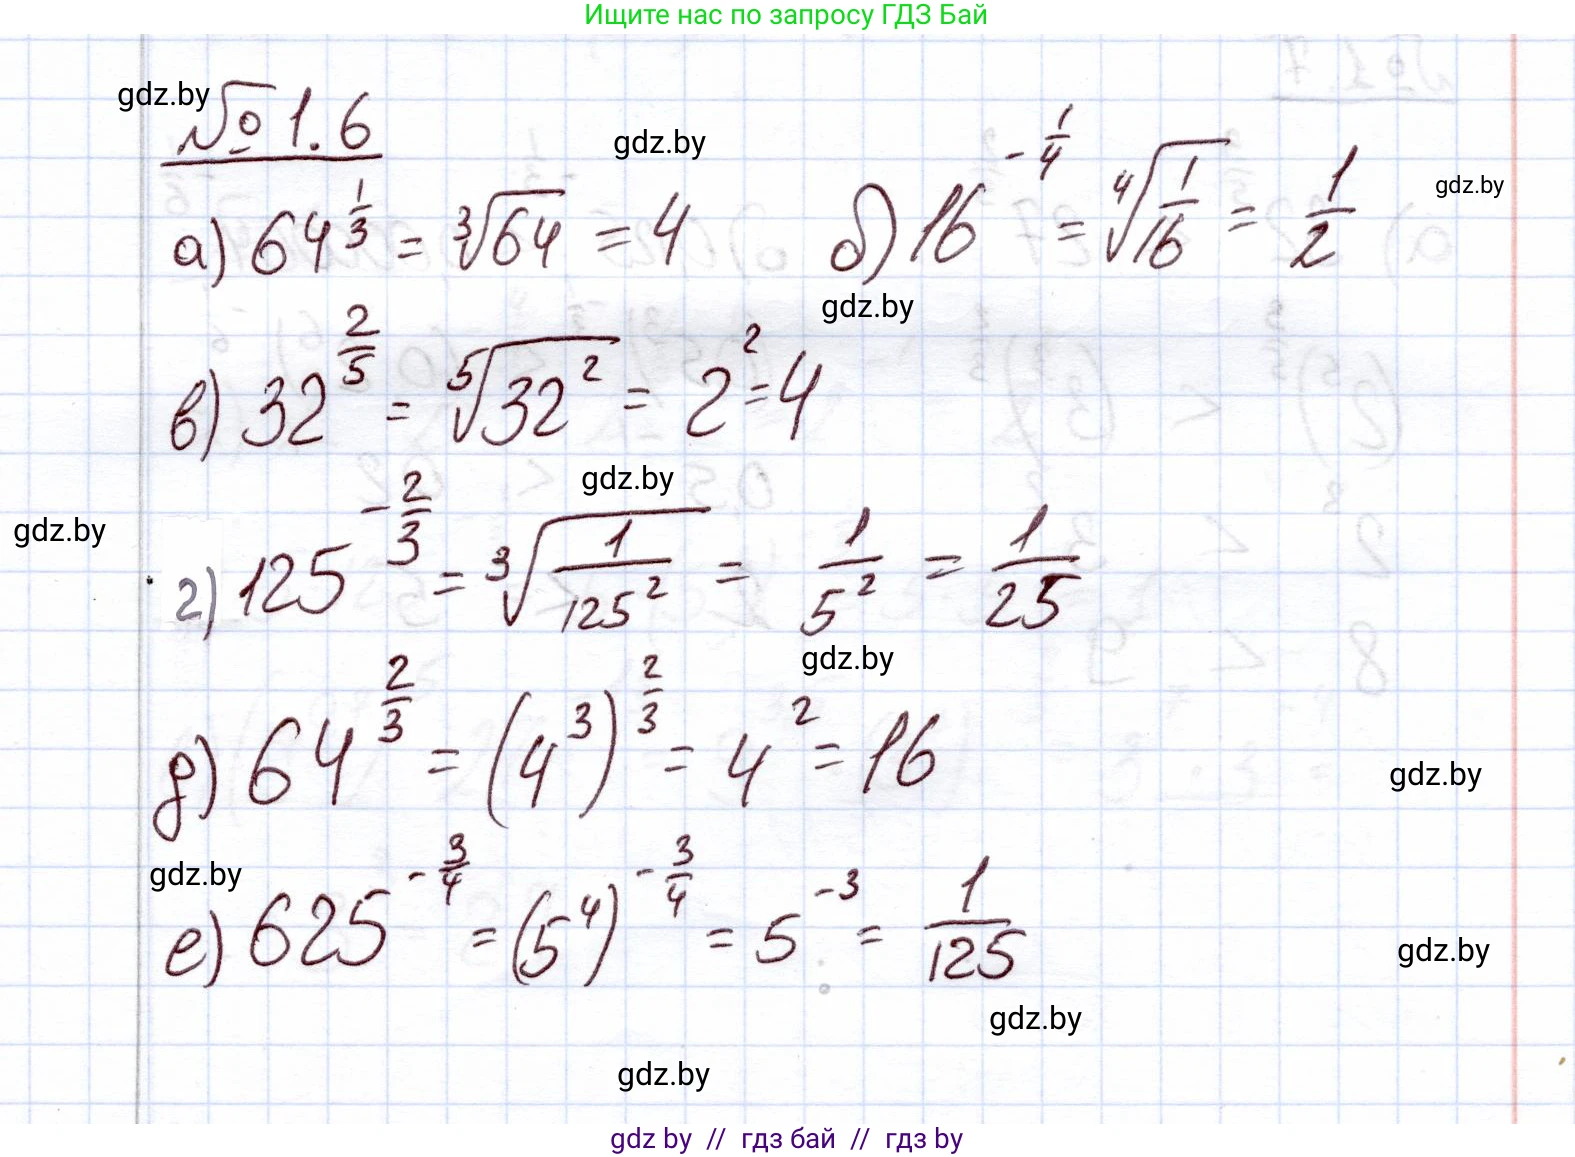 Ищите нас по запросу ГДЗ Бай
gdz.by
№ 1.6
gdz.by
gdz.by
а) 64^(1/3) = ∛64 = 4 б) 16^(-1/4) = ⁴√(1/16) = 1/2
gdz.by
в) 32^(2/5) = ⁵√(32²) = 2² = 4
gdz.by
gdz.by
г) 125^(-2/3) = ∛(1/125²) = 1/5² = 1/25
gdz.by
д) 64^(2/3) = (4³)^(2/3) = 4² = 16
gdz.by
gdz.by
е) 625^(-3/4) = (5⁴)^(-3/4) = 5^(-3) = 1/125
gdz.by
gdz.by
gdz.by
gdz by // гдз бай // гдз by